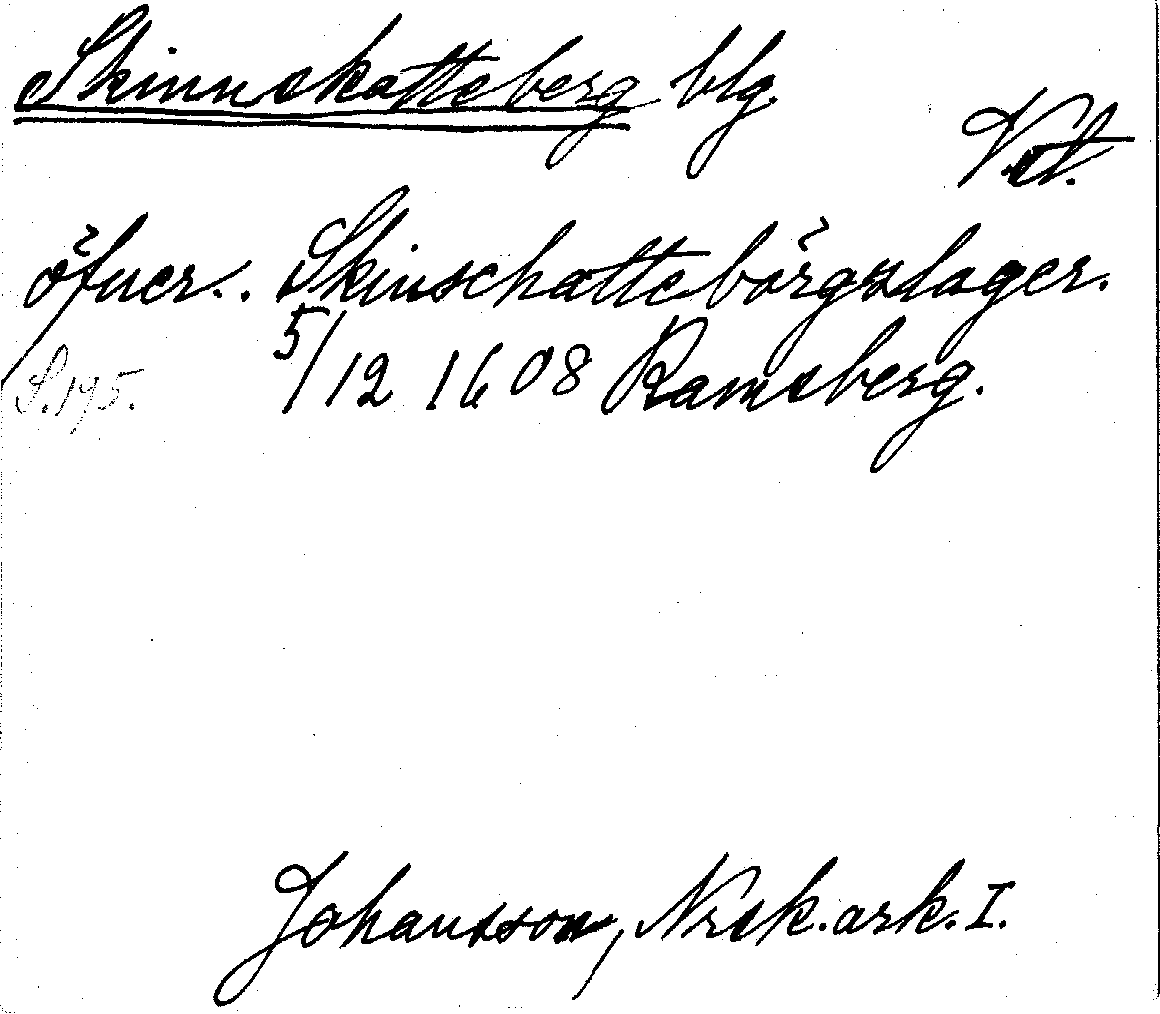 Skinnskatteberg blg
Vst.
öfuer.. Skinschattebörgzlager.
5/12 1608 Ramsberg.
S.195.
Johansson, Norsk.ark.I.